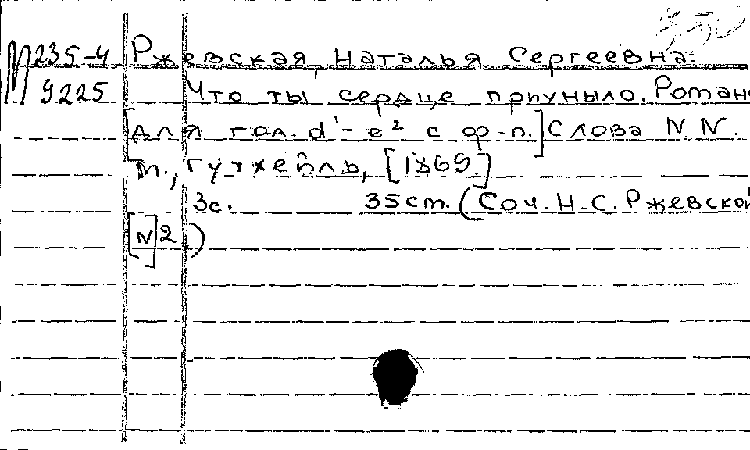 М 235-4 Ржевская, Наталья Сергеевна.
9225 Что ты сердце приуныло. Роман
для гол. d¹-e² с ф-п.] Слова N N.
м., Гутхейль, [1869]
3с. 35 cm. (Соч. Н. С. Ржевской
[N 2])